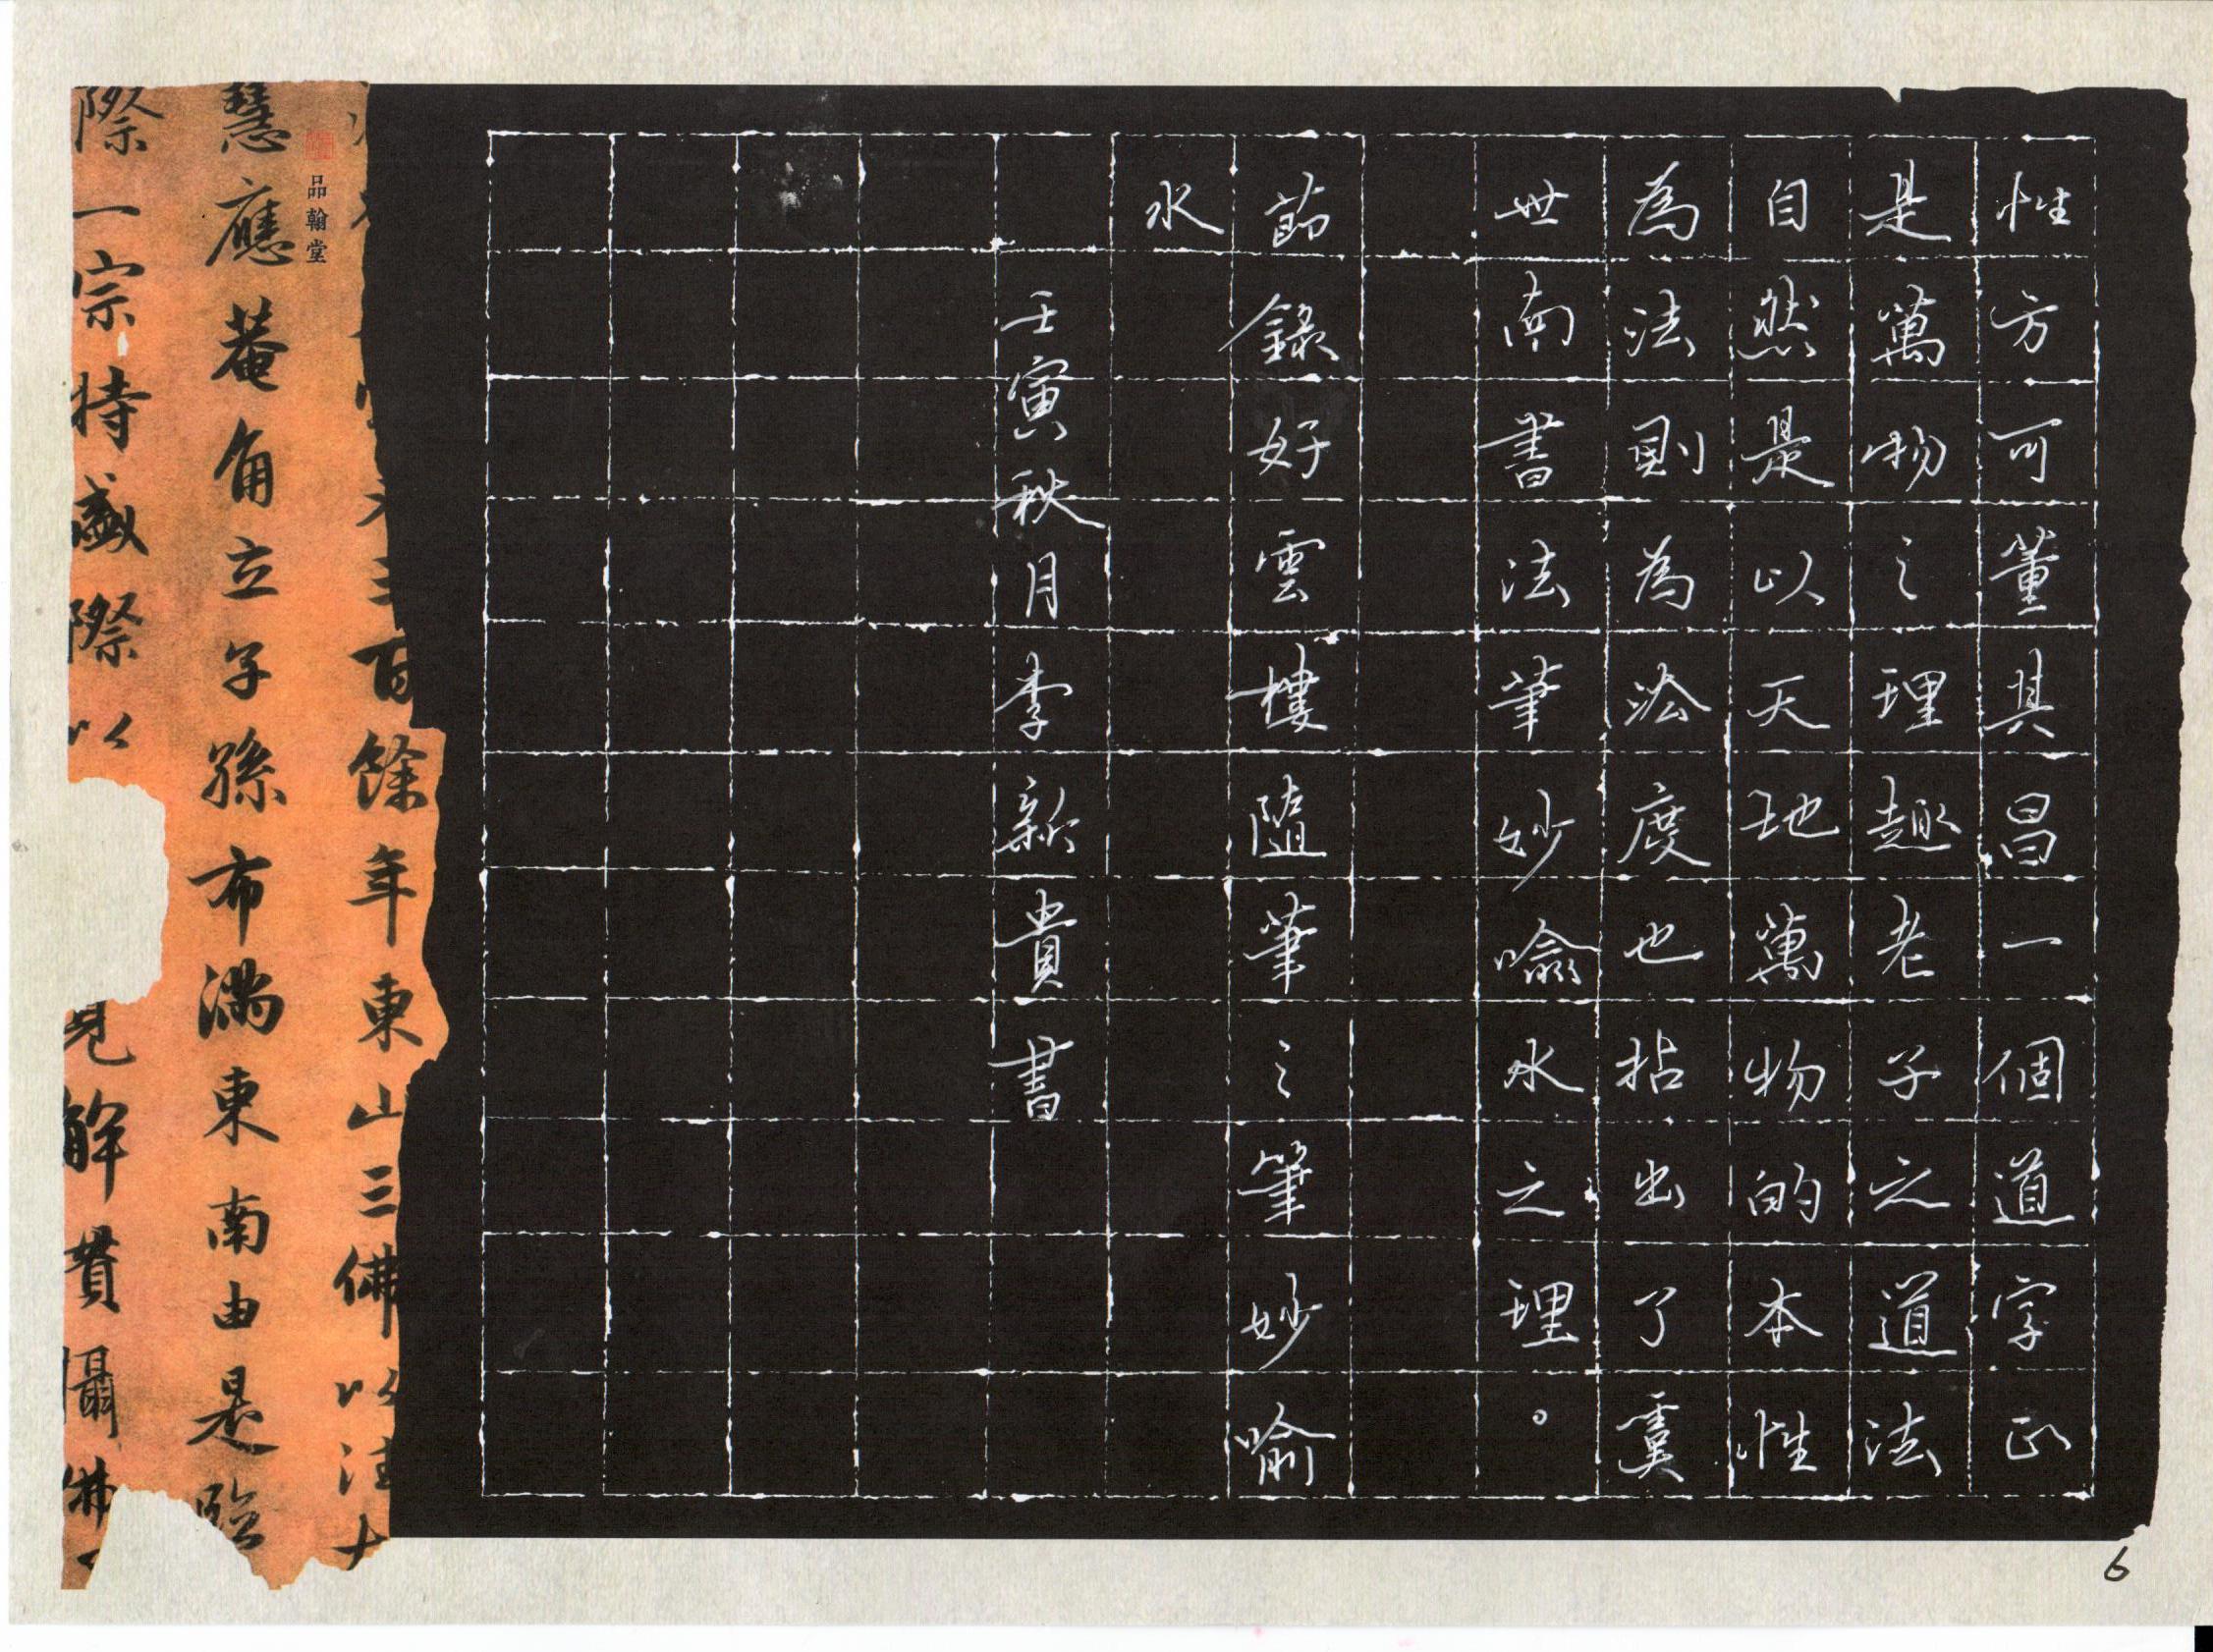 性方可董其昌一個道字正
是萬物之理趣老子之道法
自然是以天地萬物的本性
為法則為法度也拈出了虞
世南書法筆妙喻水之理。
節錄好雲樓隨筆之筆妙喻
水
壬寅秋月李新貴書
百餘年東山三佛以法
品翰堂
慧應菴角立子孫布滿東南由是臨
際一宗特盛際以見解貫攝佛
6